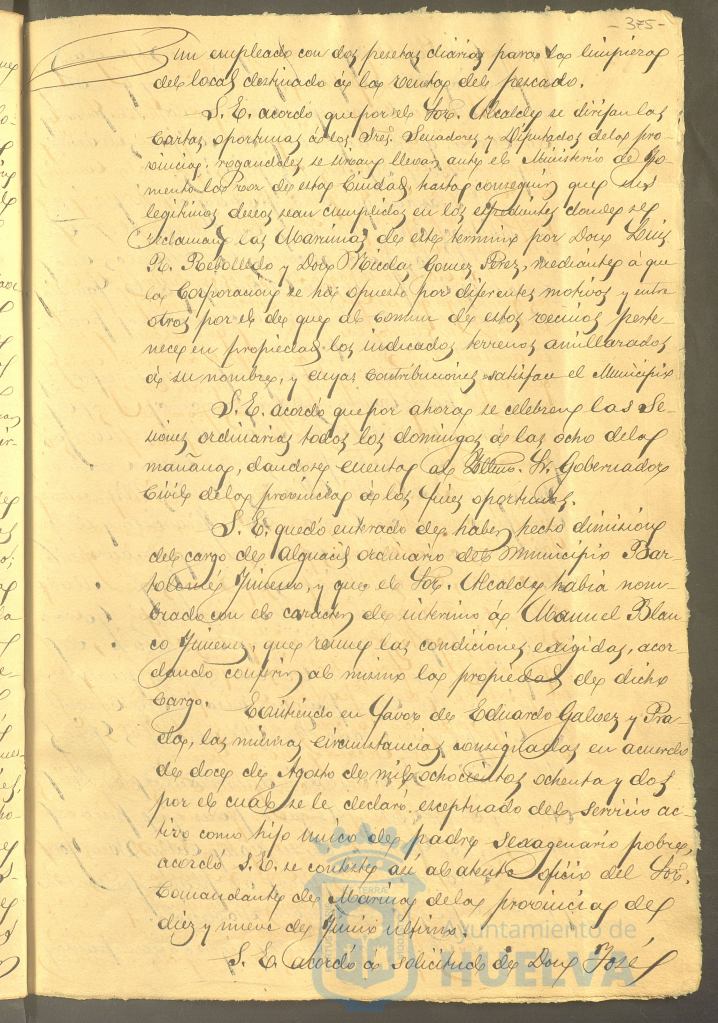 - 375 -
un empleado con dos pesetas diarias para la limpieza
del local destinado á la venta del pescado.
S. E. acordó que por el Sor. Alcalde se dirijan las
cartas oportunas á los Sres. Senadores y Diputados de la pro-
vincia, rogandoles se sirvan llevar ante el Ministerio de Fo-
mento la voz de esta Ciudad, hasta conseguir que sus
legitimos deseos sean cumplidos en los espedientes donde se
reclaman las Marismas de este termino por Don Luis
R. Rebolledo y Don Nicolas Gomez Perez, mediante á que
la Corporacion se ha opuesto por diferentes motivos y entre
otros por el de que al comun de estos vecinos perte-
nece en propiedad los indicados terrenos amillarados
á su nombre, y cuyas contribuciones satisface el Municipio
S. E. acordó que por ahora se celebren las Se-
siones ordinarias todos los domingos á las ocho de la
mañana, dandose cuenta al Iltmo. Sr. Gobernador
Civil de la provincia á los fines oportunos.
S. E. quedó enterado de haber hecho dimision
del cargo de Alguacil ordinario del Municipio Bar-
tolomé Jimenez, y que el Sor. Alcalde habia nom-
brado con el caracter de interino á Manuel Blan-
co Jimenez, que reune las condiciones exigidas, acor-
dando conferir al mismo la propiedad de dicho
cargo. Existiendo en favor de Eduardo Galvez y Pra-
da, las mismas circunstancias consignadas en acuerdo
de doce de Agosto de mil ochocientos ochenta y dos
por el cual se le declaró esceptuado del servicio ac-
tivo como hijo unico de padre sexagenario pobre,
acordó S. E. se conteste asi al atento oficio del Sor.
Comandante de Marina de la provincia del
diez y nueve de Junio ultimo.
S. E. acordó á solicitud de Don José
Ayuntamiento de
HUELVA